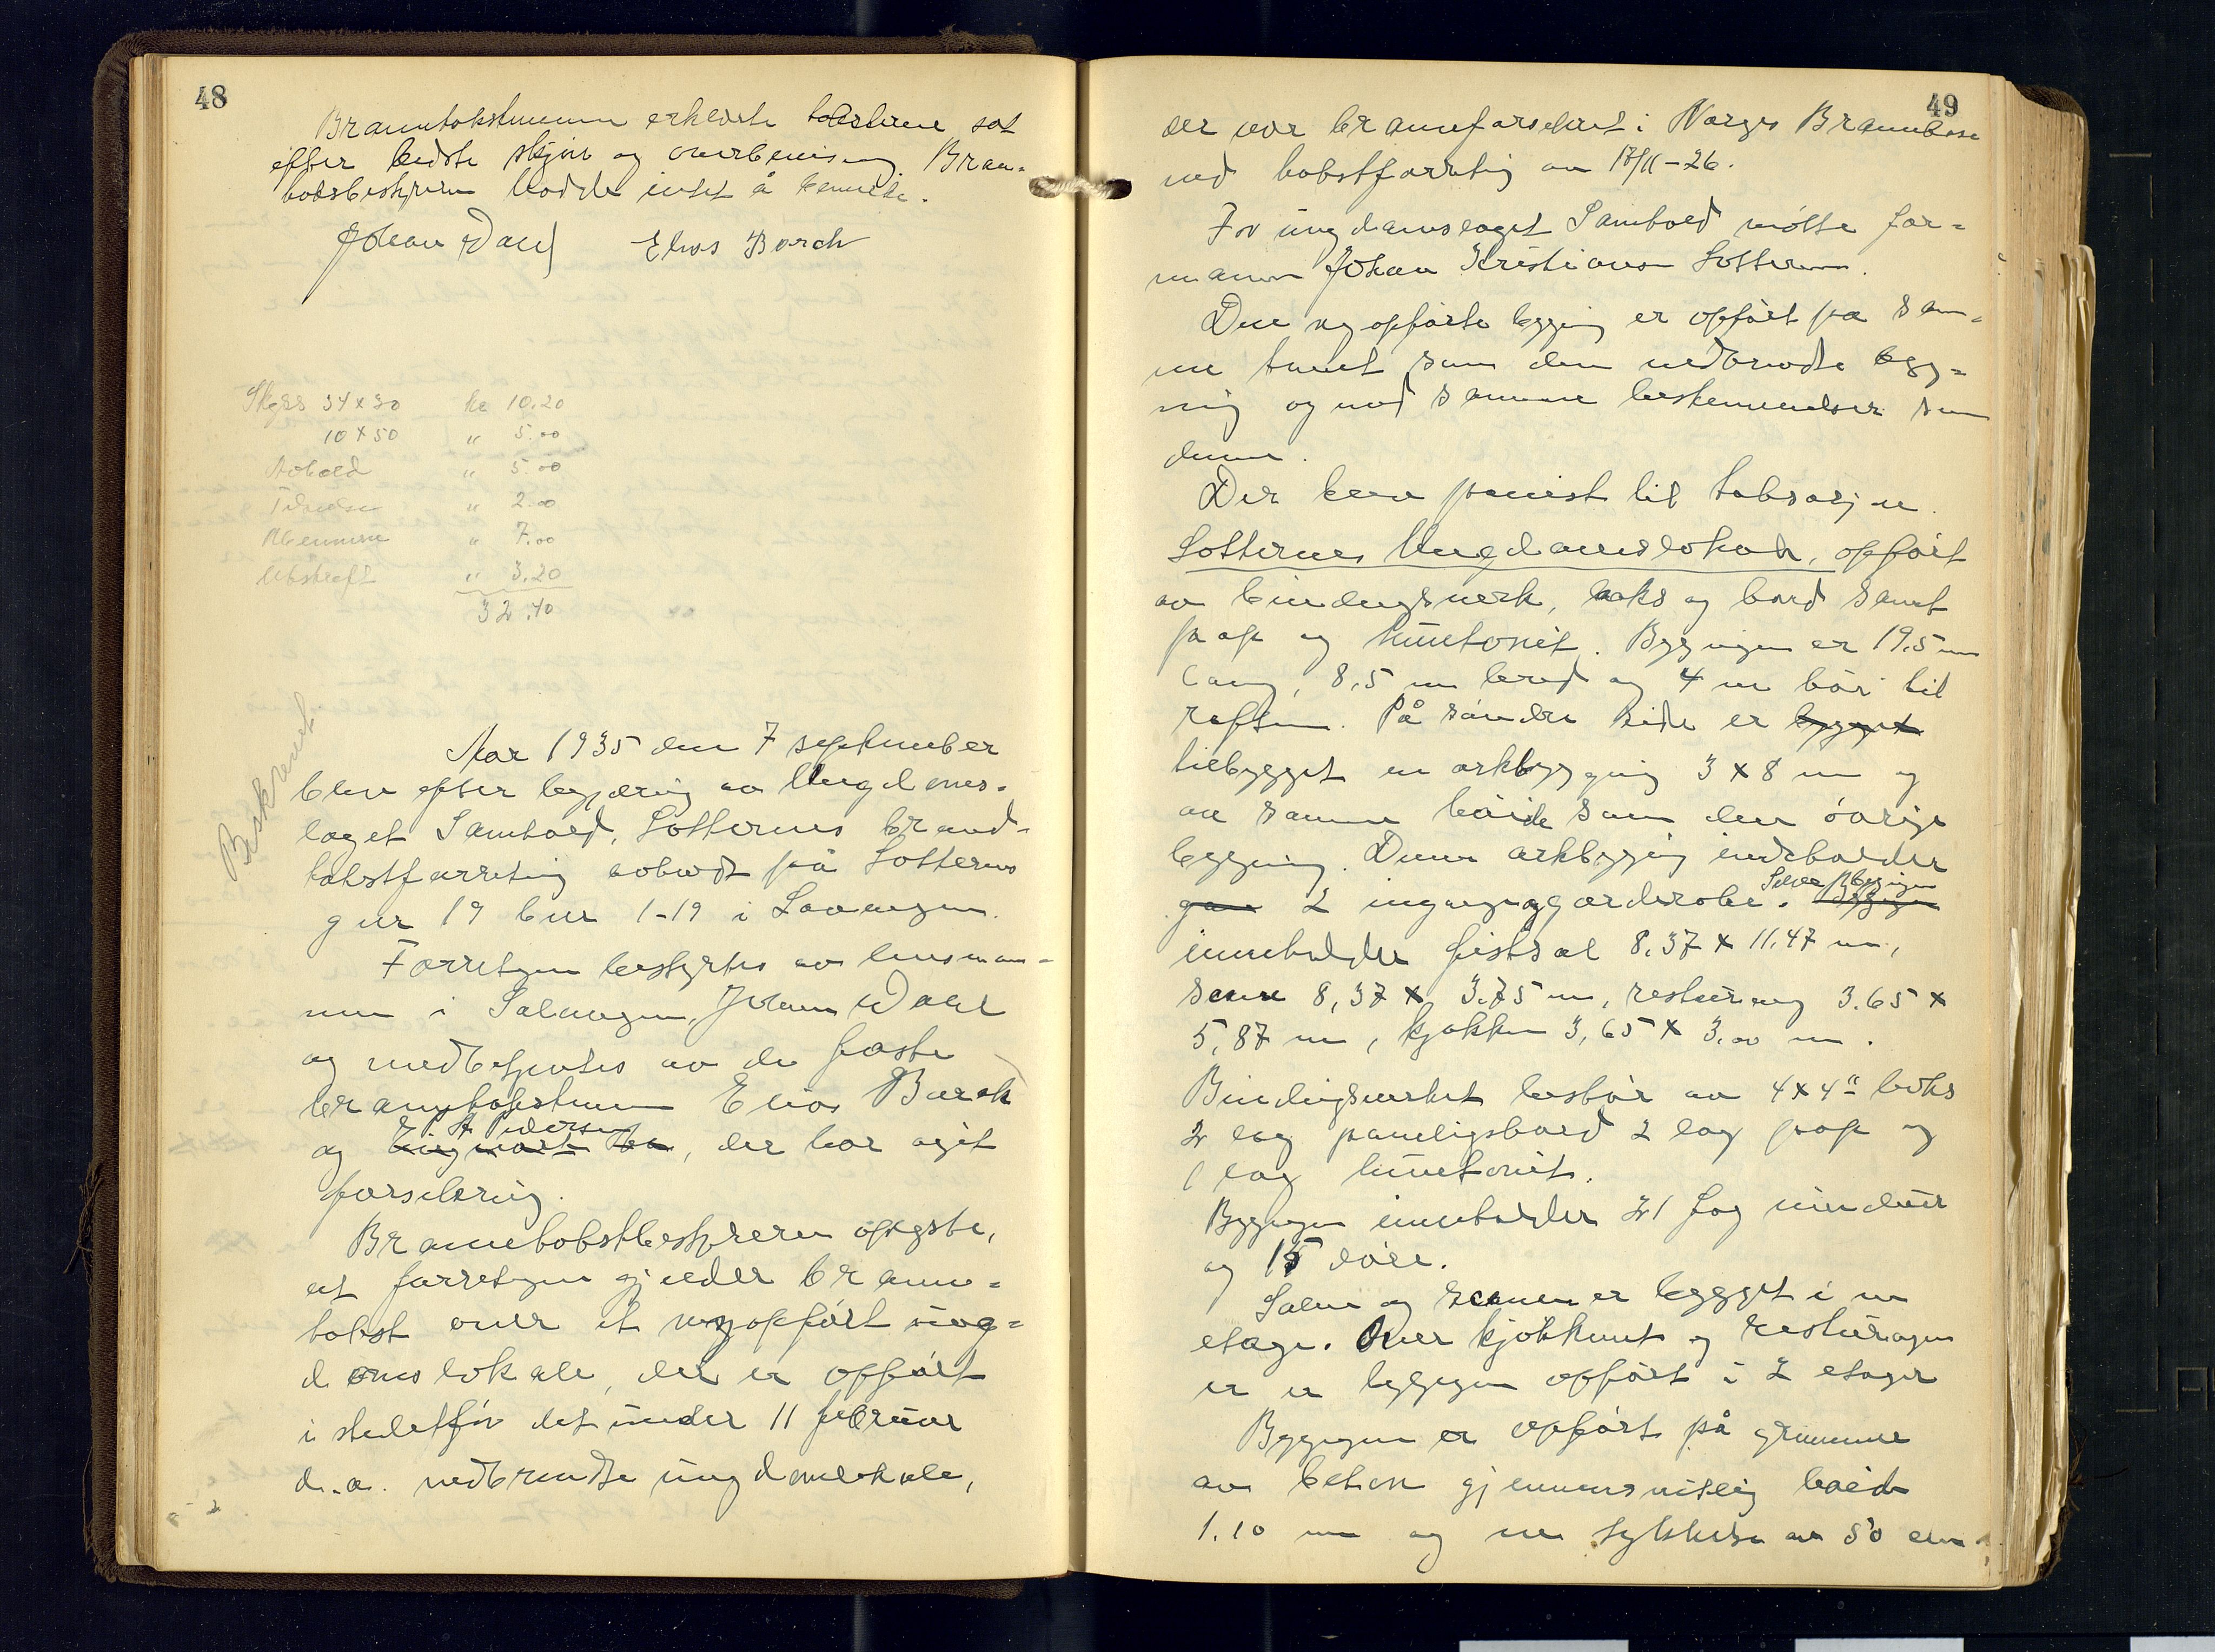 48
Branntakstmennene erklærte taksterne sat
efter bedste skjøn og overbevisning. Bran-
takstbestyreren hadde intet å bemerke.
Johan Dahl Elias Borch
Skyss 34 x 30 kr 10.20
10 x 50 " 5.00
Avhold " 5.00
" 2.00
" 7.00
Utskrift " 3.20
32.40
Beskrevet
Aar 1935 den 7 september
blev efter begjæring av Ungdoms-
laget Samhold, Lotternes brand-
takstforretning avholdt på Lotternes
gnr 19 bnr 1-19 i Lavangen.
Forretningen bestyrtes av lensman-
nen i Salangen, Johan Dahl
og medbetjentes av de faste
branntakstmenn Elias Borch
og P. A. Pedersen, der har avgit
forsikring.
Branntakstbestyreren oplyste,
at forretningen gjælder brann-
takst over et nyopført ung-
domslokale, der er opført
i stedetfor det under 11 februar
d.a. nedbrendte ungdomslokale,
49
der var branneforsikret i Norges Brannkasse
ved takstforretning av 17/11-26.
For ungdomslaget Samhold møtte for-
mannen Johan Kristiansen Lotternes.
Den nyopførte bygning er opført på sam-
me tomt som den nedbrendte byg-
ning og med samme bestemmelser som
denne.
Der blev påvist til taksasjon.
Lotternes Ungdomslokale, opført
av bindingsverk, laks og bord samt
pap og huntonit. Bygningen er 19,5 m
lang, 8,5 m bred og 4 m høi til
raftene. På søndre side er bygget
tilbygget en arkbygging 3 x 8 m og
av samme høide som den øvrige
bygning. Denne arkbygging indeholder
2 inganger og garderobe. Selve bygningen
inneholder festsal 8,37 x 11,47 m,
scene 8,37 x 3,75 m, resturang 3.65 x
5,87 m, kjøkken 3,65 x 3,00 m.
Bindingsverket består av 4 x 4" boks
2 lag panelingsbord 2 lag pap og
1 lag huntonit.
Bygningen inneholder 21 fag vinduer
og 15 døre.
Salen og scenen er bygget i en
etage. Over kjøkkenet og resturangen
er bygningen opført i 2 etager
Bygningen er opført på grunnmur
av beton gjennemsnitlig høide
1.10 m og en tykkelse av 50 cm.